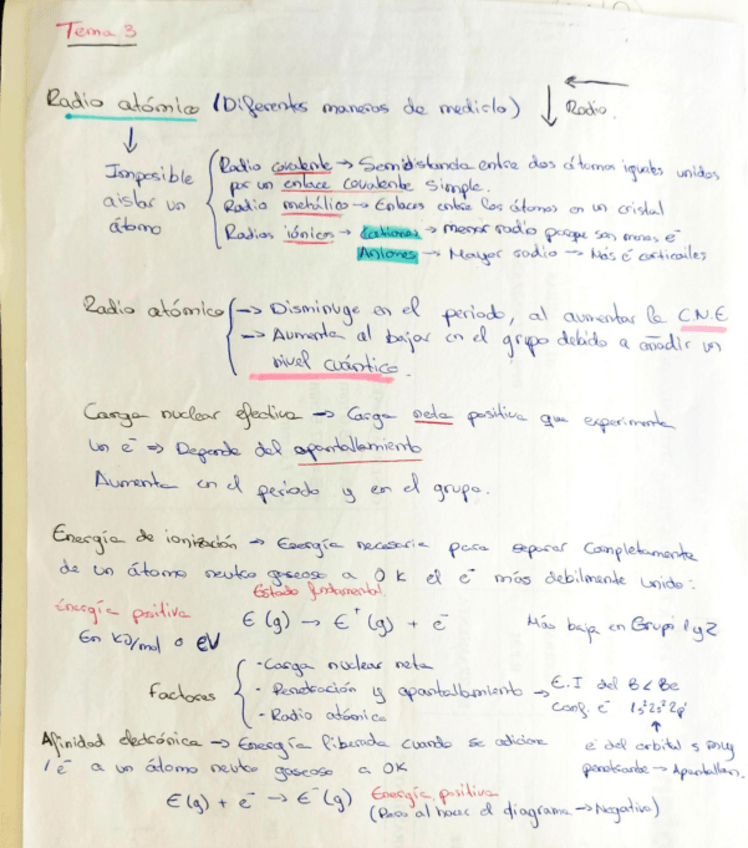 Tema 3
Radio atómico (Diferentes maneras de medirlo) ↓ ← Radio.
↓
Imposible aislar un átomo
Radio covalente → Semidistancia entre dos átomos iguales unidos
por un enlace covalente simple.
Radio metálico → Enlaces entre los átomos en un cristal
Radios iónicos → Cationes → menor radio porque son menos e⁻
Aniones → Mayor radio → Más e⁻ corticales
Radio atómico → Disminuye en el periodo, al aumentar la C.N.E
→ Aumenta al bajar en el grupo debido a añadir un
nivel cuántico.
Carga nuclear efectiva → Carga neta positiva que experimenta
un e⁻ ⇒ Depende del apantallamiento
Aumenta en el periodo y en el grupo.
Energía de ionización → Energía necesaria para separar completamente
de un átomo neutro gaseoso a 0 K el e⁻ más debilmente unido:
Estado fundamental.
Energía positiva
En kJ/mol o eV
E (g) → E⁺ (g) + e⁻
Más baja en Grupo 1 y 2
Factores
· Carga nuclear neta
· Penetración y apantallamiento → E.I del B < Be
· Radio atómico
Conf. e⁻ 1s² 2s² 2p¹
↑
e⁻ del orbital s muy
penetrante → Apantallan.
Afinidad electrónica → Energía liberada cuando se adiciona
1 e⁻ a un átomo neutro gaseoso a 0K
E(g) + e⁻ → E⁻(g) Energía positiva
(Pero al hacer el diagrama → Negativo)